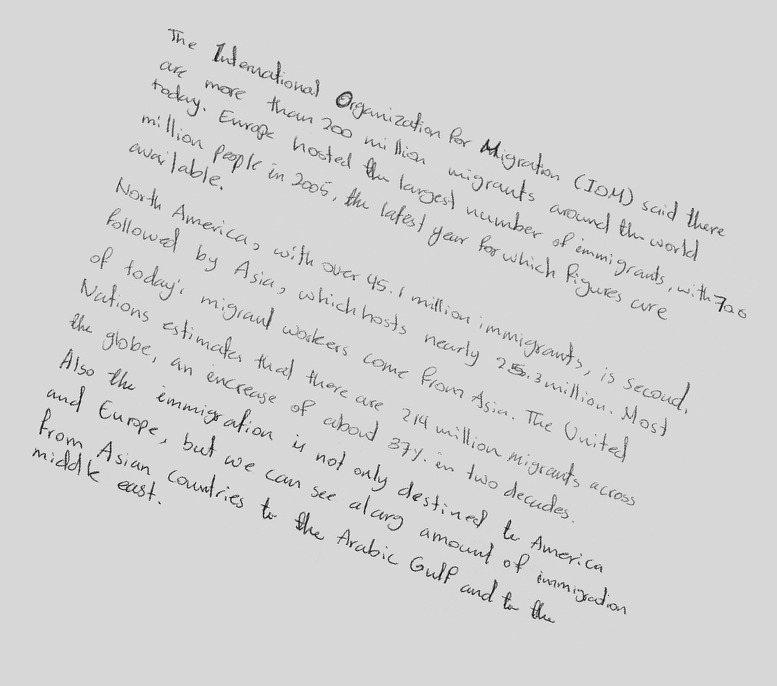 The International Organization for Migration (IOM) said there
are more than 200 million migrants around the world
today. Europe hosted the largest number of immigrants, with
million people in 2005, the latest year for which figures are
available.
North America, with over 45.1 million immigrants, is second,
followed by Asia, which hosts nearly 25.3 million. Most
of today's migrant workers come from Asia. The United
Nations estimates that there are 214 million migrants across
the globe, an increase of about 37% in two decades.
Also the immigration is not only destined to America
and Europe, but we can see a larg amount of immigration
from Asian countries to the Arabic Gulf and to the
middle east.